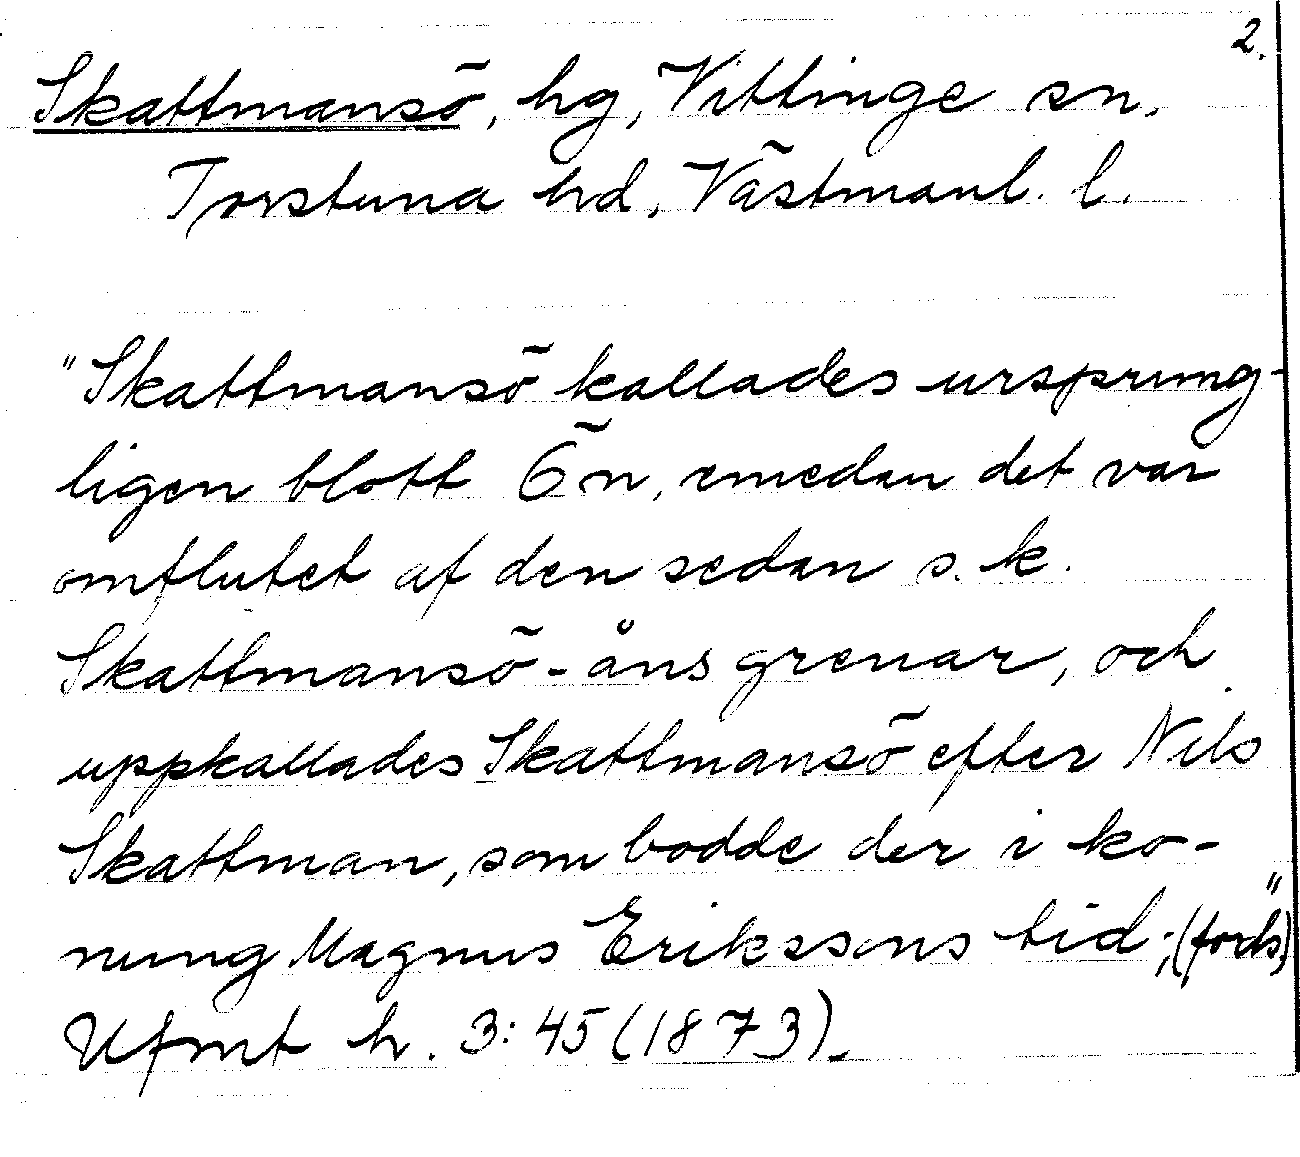 2.
Skattmansö, hg, Vittinge sn,
Torstuna hd, Västmanl. l.
"Skattmansö kallades ursprung-
ligen blott Ön, emedan det var
omflutet af den sedan s.k.
Skattmansö-åns grenar, och
uppkallades Skattmansö efter Nils
Skattman, som bodde der i ko-
nung Magnus Erikssons tid;" (forts)
Ufmt h. 3:45 (1873).